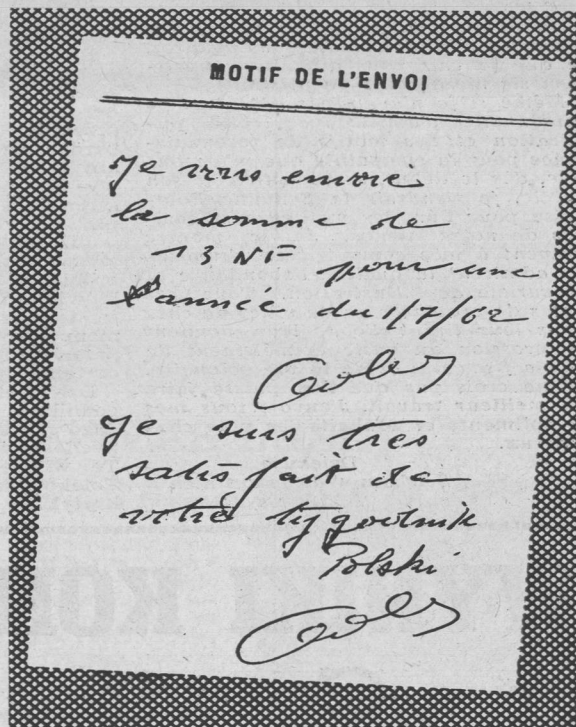 MOTIF DE L'ENVOI
Je vous envoie
la somme de
13 NF pour une
année du 1/7/62
Je suis très
satisfait de
votre tygodnik
Polski